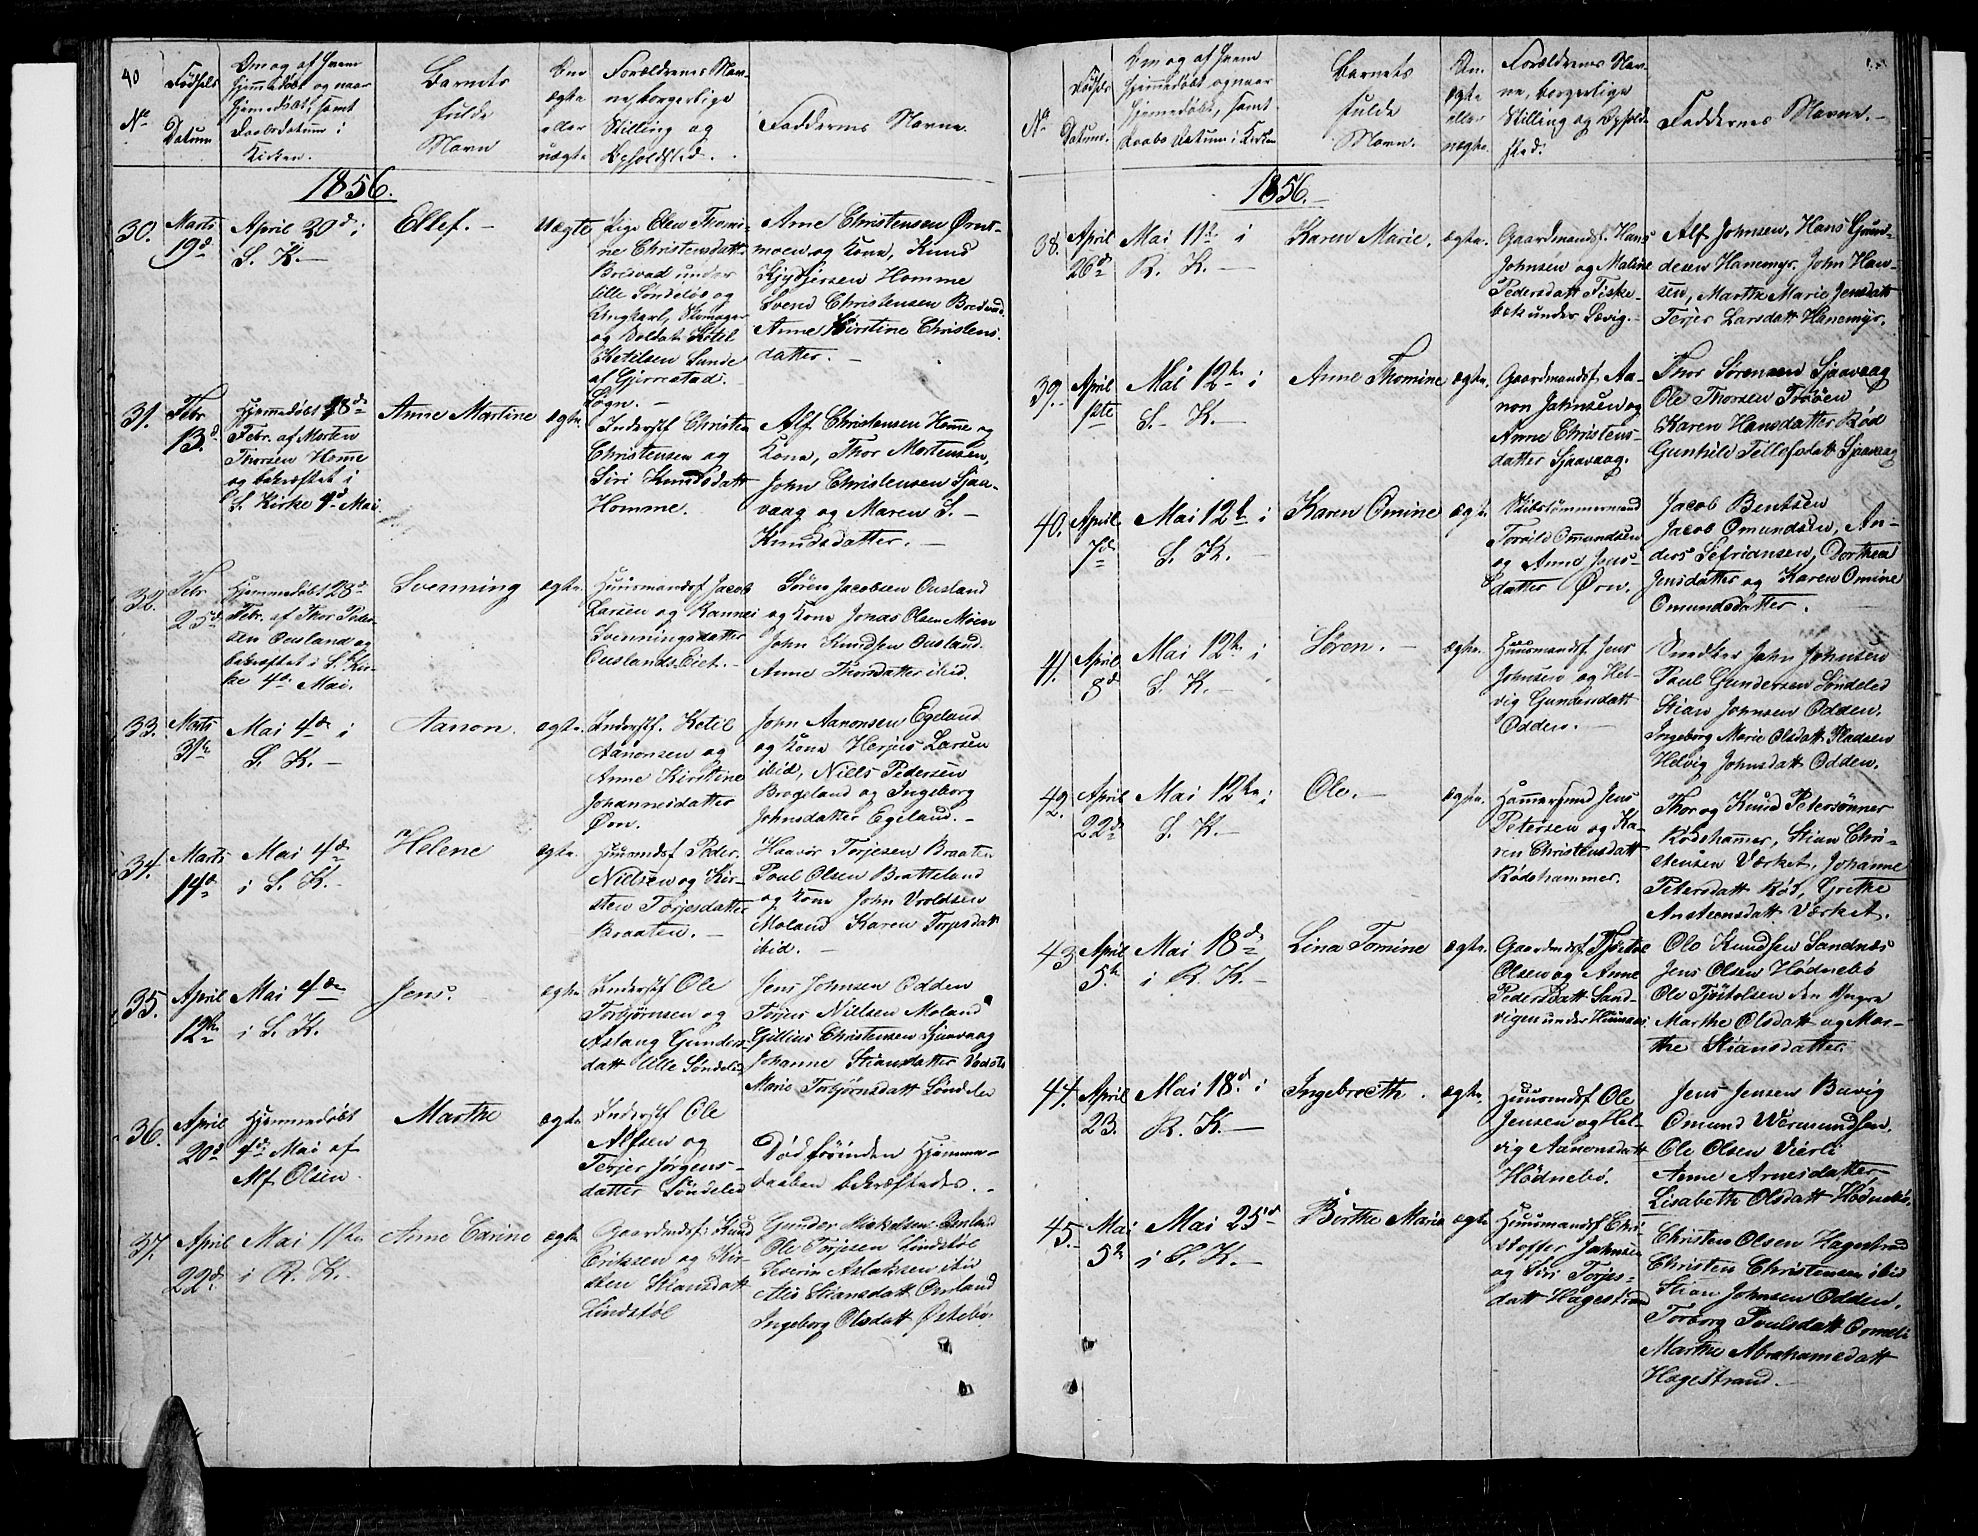 40
No
Fødsels
Datum
Om og af hvem
hjemmedøbt og naar
hjemmedøbt, samt
Daabsdatum i
Kirken.
Barnets
fulde
Navn
Om
ægte
eller
uægte
Forældrenes Nav-
ne, borgerlige
Stilling og
Opholdsted.
Faddernes Navne.
1856.
30.
Marts
19d
April 20d i
S. K.
Ellef.
Uægte
Pige Elen Thomi-
ne Christensdatt
under
lille Søndeløv og
Ungkarl, Skomager
og Soldat Ketil
Ketilsen Sunde
af Gjerrestad.
Søgn.
Arne Christensen
moen og Kone, Knud
Homme
Svend Christensen
Anne Kirstine Christens
datter.
31.
Febr
13d
Hjemmedøbt 18d
Febr. af Morten
Thorsen Homme
og bekræftet i
S. Kirke 4d Mai
Anne Martine
ægte
Inderstf Christen
Christensen og
Siri Knudsdatt
Homme.
Alf Christensen Homme og
Kone, Thor Mortensen,
John Christensen Sjaa-
vaag og Maren S.
Knudsdatter.
32.
Febr
25d
Hjemmedøbt 28d
Febr. af Thor Peder-
sen Ousland og
bekræftet i S. Kir-
ke 4de Mai.
Svenning
ægte
Huusmandsf Jacob
Larsen og Rannei
Svenningsdatter
Ouslands Eiet.
Søren Jacobsen Ousland
og Kone Jonas Olsen Moen
John Knudsen Ousland.
Anne Thorsdatter ibid.
33.
Marts
31te
Mai 4de i
S. K.
Aanon.
ægte.
Inderstf. Ketil
Aanonsen og
Anne Kirstine
Johannesdatter
Ørn.
John Aanonsen Egeland
og Kone Herjus Larsen
ibid, Niels Pedersen
Brøgeland og Ingeborg
Johnsdatter Egeland.
34.
Marts
14d
Mai 4de
i S. K.
Helene
ægte.
Huusmdsf Peder
Nielsen og Kir-
sten Torjesdatter
Braaten.
Haavor Torjesen Braaten
Poul Olsen Bratteland
og Kone John Uroldsen
Moland Karen Torjesdatt
ibid.
35.
April
12te
Mai 4de
i S. K.
Jens.
ægte
Inderstf Ole
Torbjørnsen og
Aslaug Gunders-
datt Lille Søndeled
Jens Johnsen Odden
Torjus Nielsen Moland
Gillius Christensen Sjaavaag
Johanne Stiansdatter
Marie Torbjørnsdatt Søndelev
36.
April
20d
Hjemmedøbt
4de Mai af
Alf Olsen.
Marthe
ægte
Inderstf Ole
Alfsen og
Terjer Jørgens-
datter Søndeled
Død förinden Hjemme-
daaben bekræftedes.
37.
April
22d
Mai 11te
i R. K.
Anne Carine
ægte
Gaardmdsf. Knud
Eriksen og Kir-
sten Stiansdatt
Lindstøl
Gunder Mickelsen Omland
Ole Torjesen Lindstøl
Severin Aslaksen ibid
Alis Stiansdatt Omland
Ingeborg Olsdatt Østebø.
No
Fødsels
Datum.
Om og af hvem
hjemmedøbt og naar
hjemmedøbt, samt
Daabs Datum i Kirken
Barnets
fulde
Navn.
Om
ægte
eller
uægte.
Forældrenes Nav-
ne, borgerlige
Stilling og Ophold-
sted.
Faddernes Navne.
1856.
38.
April
26d
Mai 11te i
R. K.
Karen Marie,
ægte.
Gaardmandsf. Hans
Johnsen og Maline
Pedersdatt Fiske-
bæk under Lovig.
Alf Johnsen, Hans Gund-
desen Hanemyr, John Han-
sen, Marthe Marie Jensdatt
Terjer Larsdatt Hanemyr.
39.
April
1ste
Mai 12te i
S. K.
Anne Thomine
ægte.
Gaardmandsf Aa-
non Jahnsen og
Anne Christens-
datter Sjaavaag.
Thor Sørensen Sjaavaag
Ole Thorsen Trøoen
Karen Hansdatter Rød
Gunhild Tellefsdatt Sjaavaag
40.
April
7de
Mai 12te i
S. K.
Karen Omine
ægte.
Skibstømmermand
Torvild Omundsen
og Anne Jens-
datter Ørn.
Jacob Bentsen
Jacob Omundsen, An-
ders Sefriansen, Dorthea
Jensdatter og Karen Omine
Omundsdatter.
41.
April
8d
Mai 12te i
S. K.
Søren.
ægte.
Huusmandsf Jens
Johnsen og Hel-
vig Gundersdatt
Odden.
Snedker John Johnsen
Poul Gundersen Søndeled
Stian Johnsen Odden,
Ingeborg Marie Olsdatt Pladsen
Helvig Johnsdatt Odden.
42.
April
22d
Mai 12te i
S. K.
Ole.
ægte.
Hammersmed Jens
Petersen og Ka-
ren Christensdatt
Rødshammer.
Thor og Knud Petersønner
Rødshammer, Stian Chri-
stensen Værket, Johanne
Petersdatt Rød, Grethe
Anstensdatt Værket.
43
April
5te
Mai 18de
i R. K.
Lina Tomine
ægte.
Gaardmdsf Tjøstol
Olsen og Anne
Pedersdatt Sand-
vigen under
Ole Knudsen Sandnæs
Jens Olsen Hødnebø
Ole Tjøstolsen den Yngre
Marthe Olsdatt og Mar-
the Stiansdatter.
44.
April
23.
Mai 18d i
R. K.
Ingebreth.
ægte.
Huusmdsf Ole
Jensen og Hel-
vig Aanonsdatt
Hødnebø.
Jens Jensen Buvig
Omund Wermundsen,
Ole Olsen Vierli
Anne Arnesdatter
Lisabeth Olsdatt Hødnebø.
45.
Mai
5te
Mai 25de
i S. K.
Birthe Marie
ægte.
Huusmandsf Chri-
stoffer Jahnsen
og Siri Torjes-
datt Hagestrand
Christen Olsen Hagestrand
Christen Christensen ibid
Stian Johnsen Odden,
Torborg Poulsdatt
Marthe Abrahamsdatt
Hagestrand.